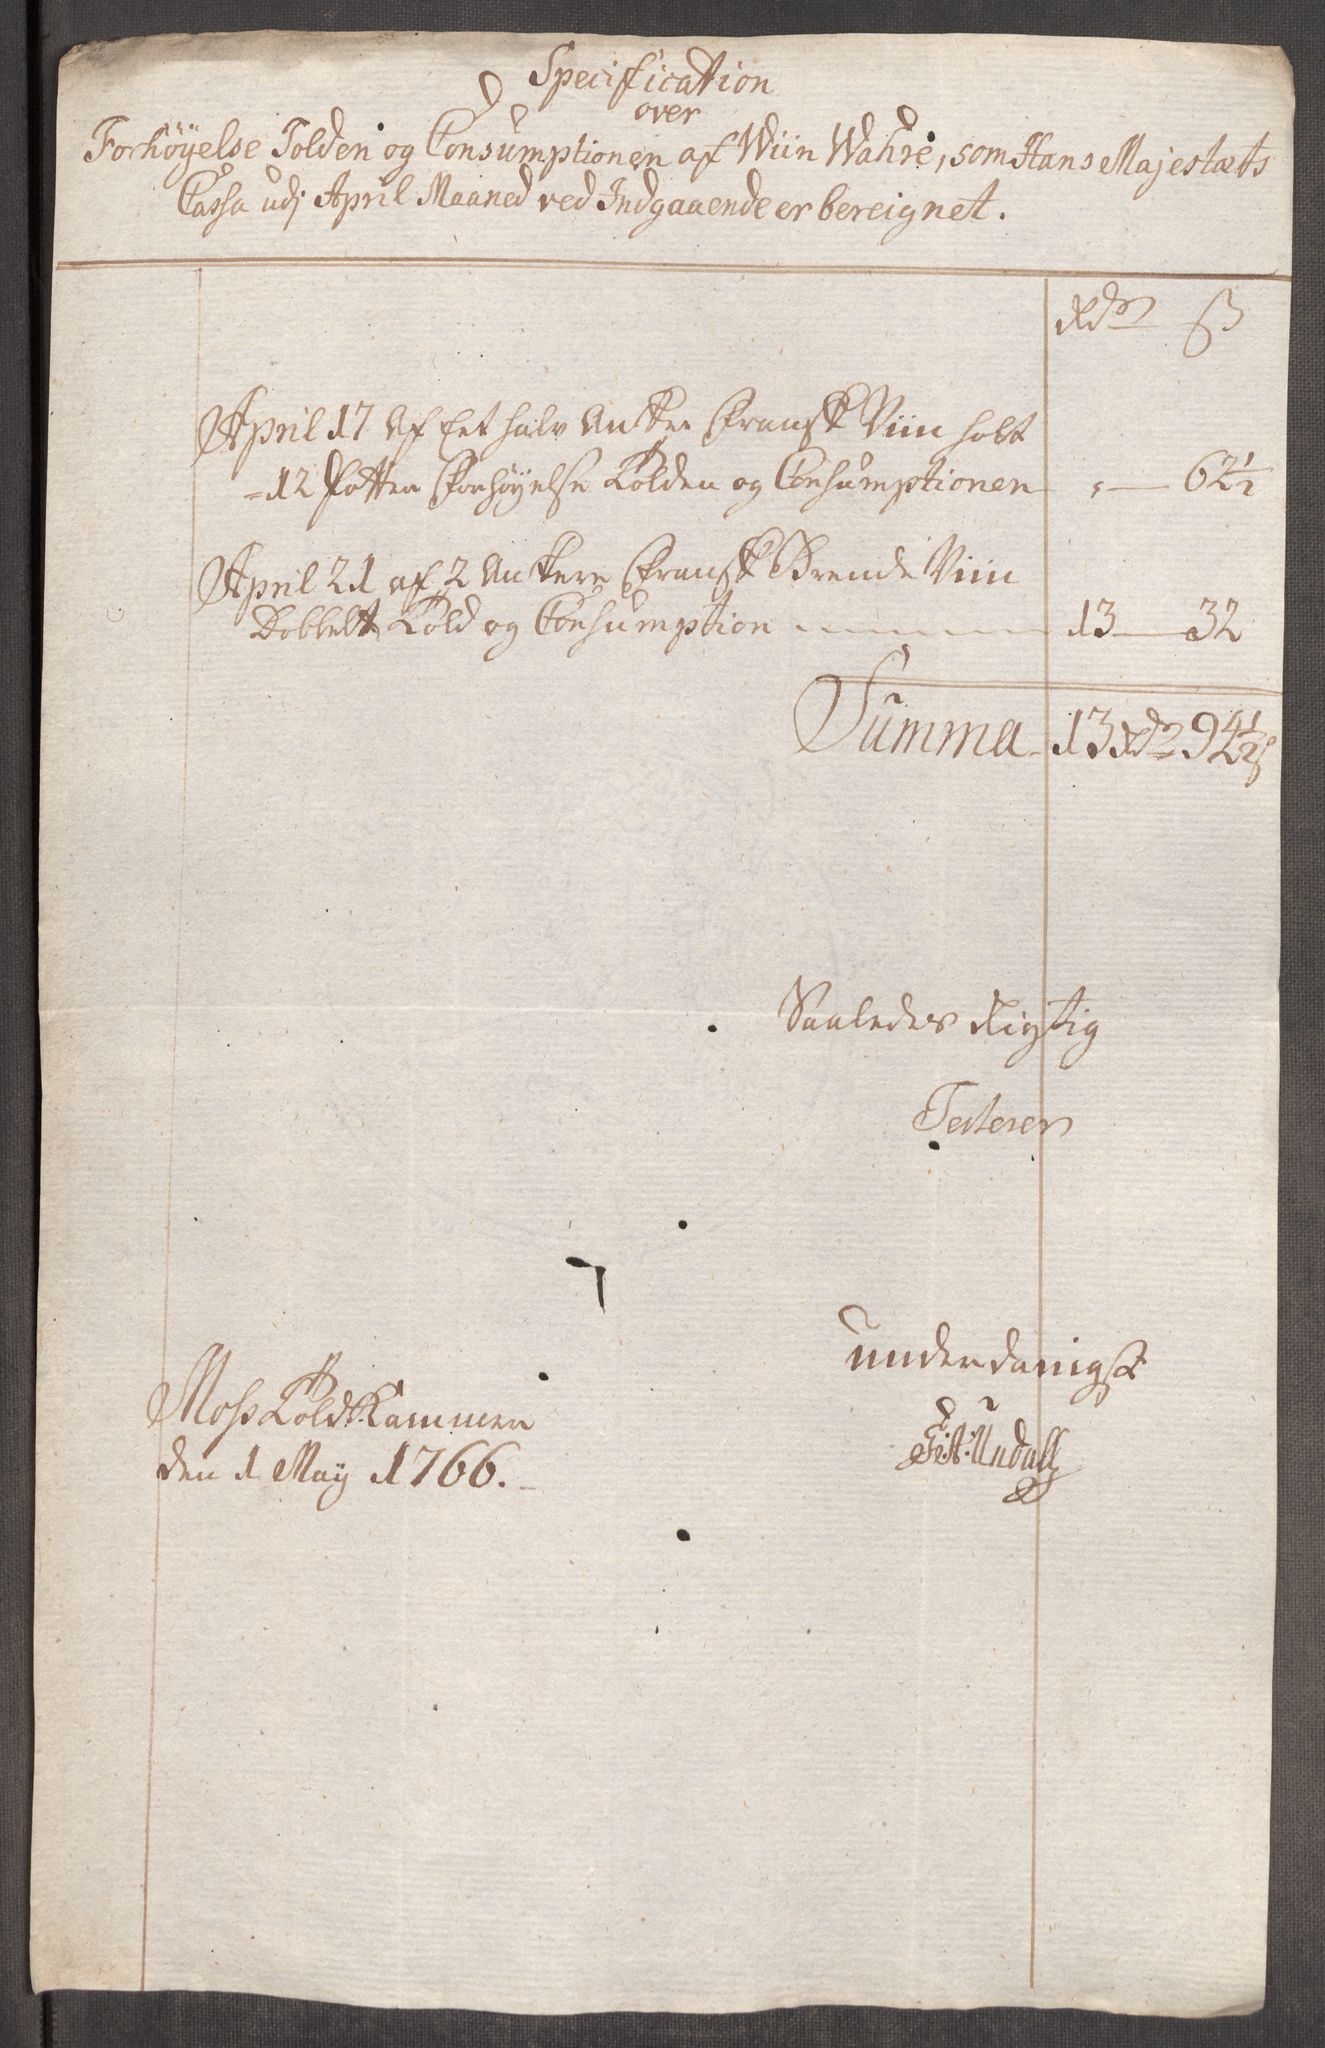 Specification
over
Forhöyelse Tolden og Consumptionen af Wiin Wahre, som Hans Majestæts
Cassa udj April Maaned ved Indgaaende er bereignet.
Rdr ß
April 17 Af Eet halv Anker Fransk Viin holt
=12 Potter Forhöyelse Tolden og Consumptionen " — 62 1/2
April 21 af 2 Ankere Fransk Brende Viin
Dobbelt Told og Consumption 13 — 32
Summa 13 Rdr 94 1/2 ß
Saaledes Rigtig
Testerer
underdanigst
Moss Told Kammer
den 1 May 1766.
Undall